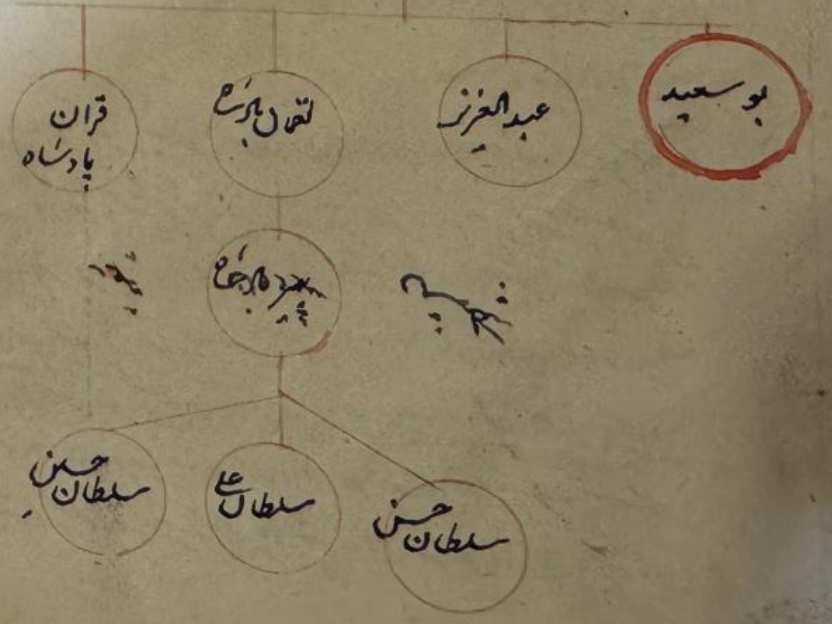 بو سعید
عبدالعزیز
لقمان پادشاه
قران
پادشاه
پیر پادشاه
سلطان حسین
سلطان علی
سلطان حسن